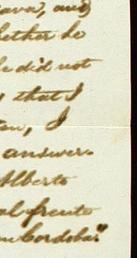 ava, and
whether he
he did not
y that I
ten, I
answer-
Alberto
al frente
Cordoba."